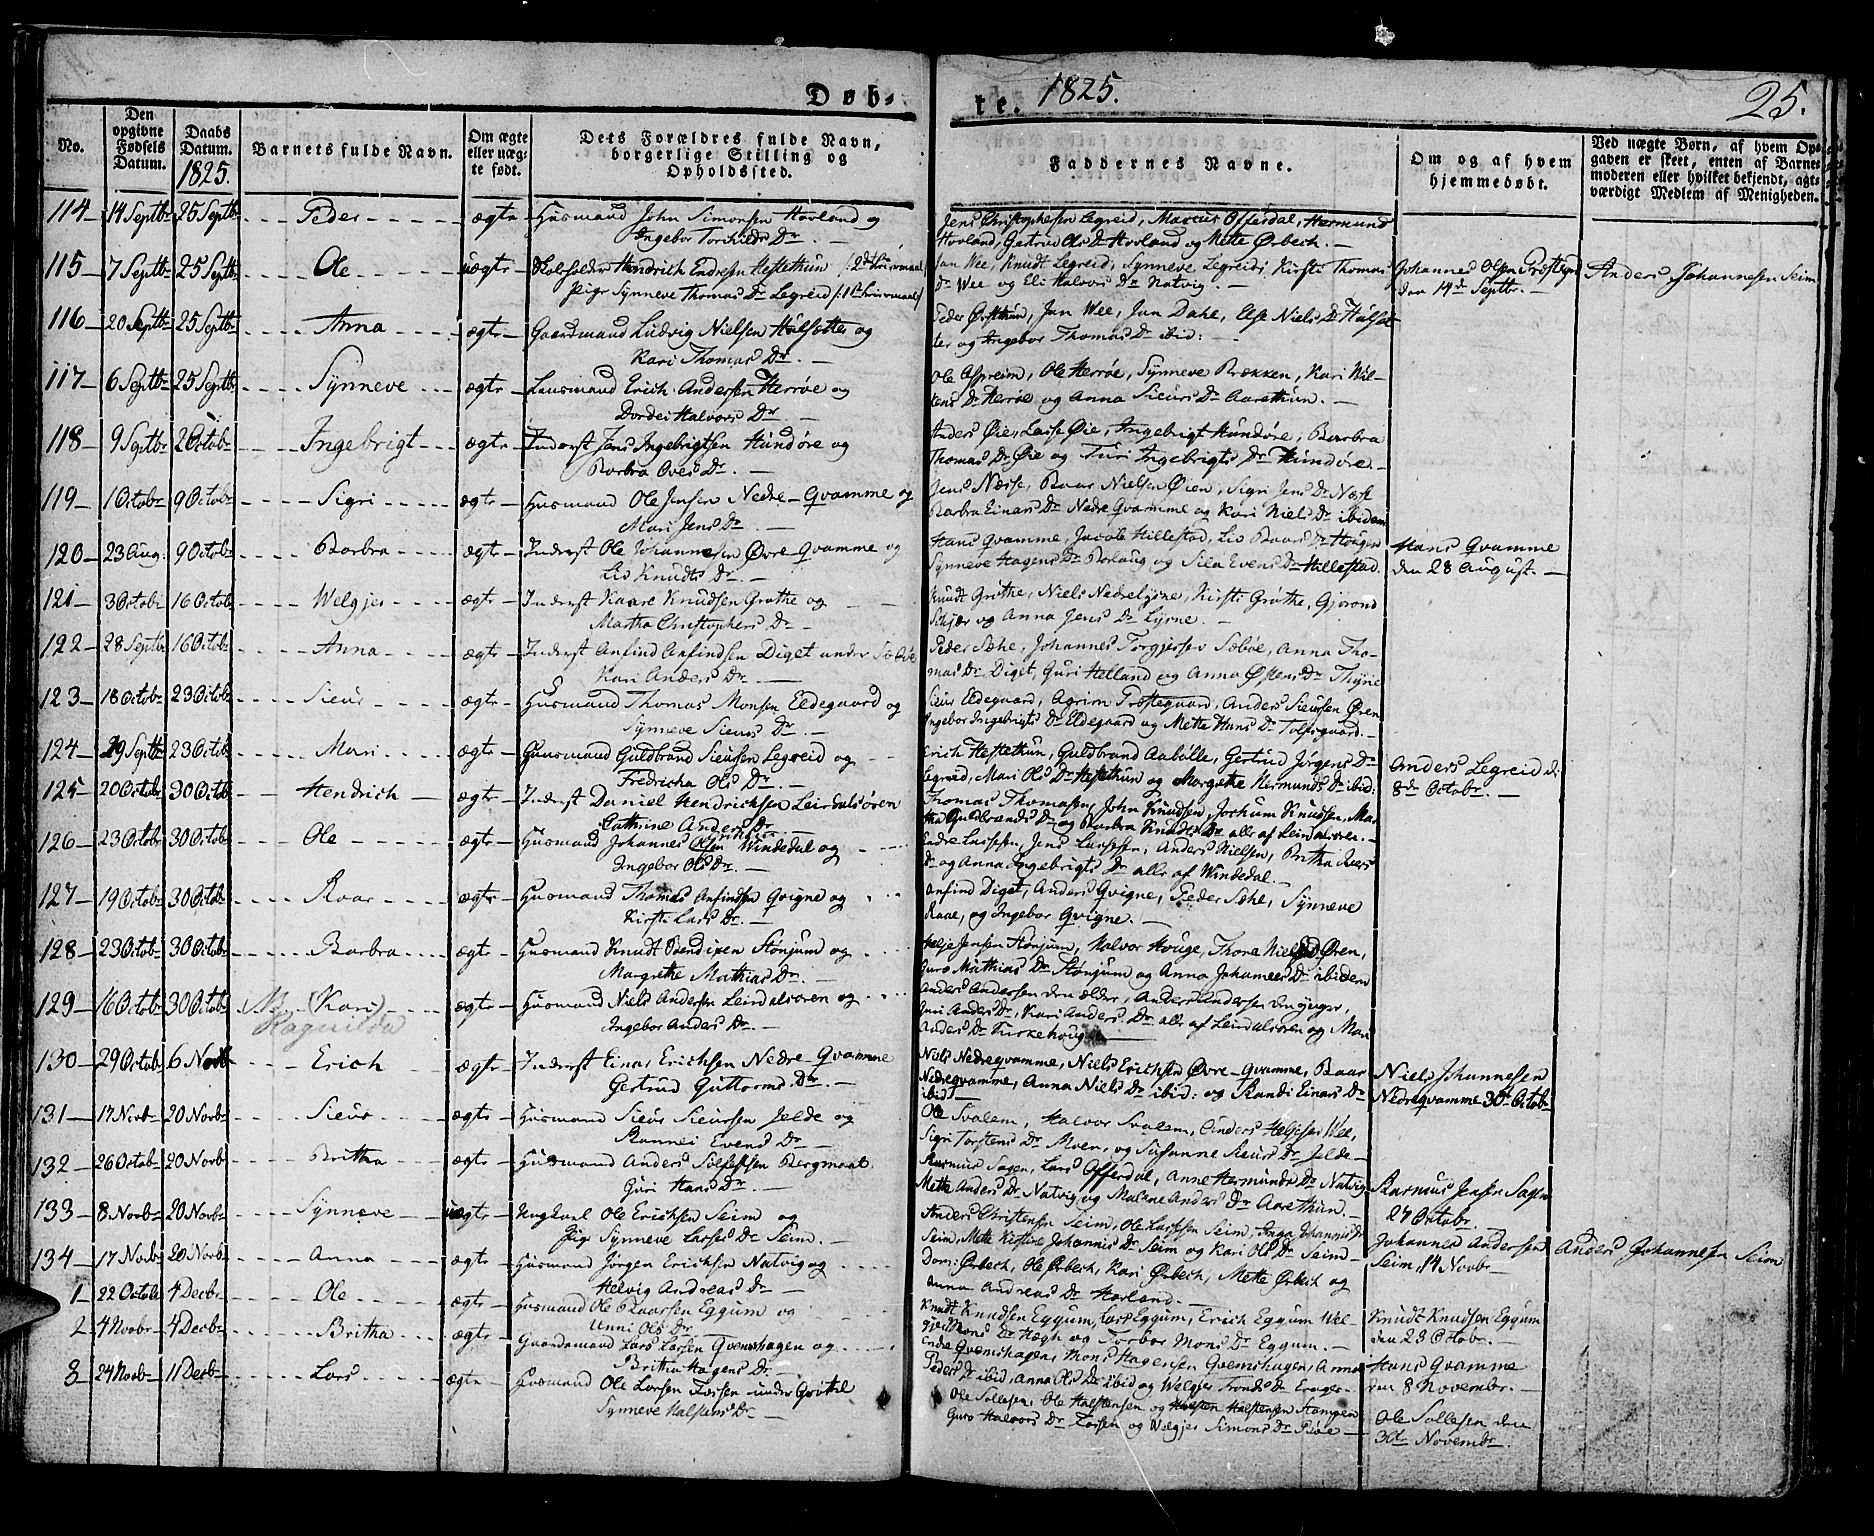 Døb-
te. 1825.
25.
No.
Den opgivne Fødsels Datum.
Daabs Datum. 1825.
Barnets fulde Navn.
Om ægte eller uæg-te født.
Dets Forældres fulde Navn, borgerlige Stilling og Opholdssted.
Faddernes Navne.
Om og af hvem hjemmedøbt.
Ved uægte Børn, af hvem Op-gaven er skeet, enten af Barne-moderen eller hvilket bekjendt, agt-værdigt Medlem af Menigheden.
114 14 Septbr 25 Septbr Peder ægte Husmand John Simonsen Hovland og
Ingebor Torchilds Dr.
Jens Christophersen Legreid, Marcus Offerdal, Hermund
Hovland, Gertrud Ols Dr Hovland og Mette Ørbech.
115 7 Septbr 25 Septbr Ole uægte Hendrich Endresen Hestethun
Pige Synneve Thomas Dr Legreid
Jan Wee, Knudt Legreid, Synneve Legreid, Kirsti Thomas
Dr Wee og Eli Halvors Dr Natvig.
Johannes Olsen
den 14de Septbr.
Anders Johannesen Seim
116 20 Septbr 25 Septbr Anna ægte Gaardmand Ludvig Nielsen Hülsætter og
Kari Thomas Dr.
Jan Wee, Jan Dahl, Else Niels Dr Hülset-
ter og Ingebor Thomas Dr ibid:
117 6 Septbr 25 Septbr Synneve ægte Lensmand Erich Andersen Herrøe og
Dordei Halvors Dr.
Ole Aspreim, Ole Herrøe, Synneve Brækken, Kari Wil-
kens Dr Herrøe og Anna Sieurs Dr Aarethun.
118 9 Septbr 2 Octobr Ingebrigt ægte Inderst Jens Ingebrigtsen Hundøre og
Barbra Oves Dr.
Anders Øie, Lasse Øie, Ingebrigt Hundøre, Barbra
Thomas Dr Øie og Turi Ingebrigts Dr Hundøre.
119 1 Octobr 9 Octobr Sigri ægte Husmand Ole Jensen Nedre-Qvamme og
Mari Jens Dr.
Jens Næsse, Baar Nielsen Øien, Sigri Jens Dr Næse
Barbra Einars Dr Nedre Qvamme og Kari Niels Dr ibidem
120 23 Aug. 9 Octobr Barbra ægte Inderst Ole Johannesen Øvre-Qvamme og
Liv Knudts Dr.
Hans Qvamme, Jacob Hillestad, Liv Baars Dr Hougen
Synneve Hagens Dr Borlaug og Sila Evens Dr Hillestad.
Hans Qvamme
den 28 August.
121 3 Octobr 16 Octobr Welgjer ægte Inderst Kaare Knudsen Grøthe og
Martha Christophers Dr
Knudt Grøthe, Niels Nedreljøsne, Kirsti Grøthe, Gjørond
Schjær og Anna Jens Dr Ljøsne.
122 28 Septbr 16 Octobr Anna ægte Inderst Anfind Anfindsen Diget under Sæbøe
Kari Anders Dr.
Peder Sæhe, Johannes Torgjersen Sæbøe, Anna Tho-
mas Dr Diget, Guri Helland og Anna Østens Dr
123 18 Octobr 23 Octobr Sieur ægte Husmand Thomas Monsen Eldegaard og
Synneve Sieurs Dr
Sieur Eldegaard, Agrim Prøstegaard, Anders Sieursen Øren
Ingebor Ingebrigts Dr Eldegaard og Mette Hans Dr
124 29 Septbr 23 Octobr Mari ægte Huusmand Guldbrand Sieursen Legreid og
Fredricha Ols Dr.
Erich Hestethun, Guldbrand Aabølle, Gertrud Jørgens Dr
Legreid, Mari Ols Dr Hestethun og Margrethe Hermunds Dr ibid:
Anders Legreid d.
8de Octobr.
125 20 Octobr 30 Octbr Hendrich ægte Inderst Daniel Hendrichsen Leirdalsøren
Cathrine Anders Dr
Thomas Thomasen, John Knudsen, Jochum Knudsen, Mar-
tha Guldbrands Dr og Barbra Knudts Dr alle af Leirdalsøren.
126 23 Octobr 30 Octobr Ole ægte Husmand Johannes Olsen Windedal og
Ingebor Ols Dr.
Endre Larsen, Jens Larsen, Anders Nielsen, Britha Ivers
Dr og Anna Ingebrigts Dr alle af Windedal.
127 19 Octobr 30 Octobr Roar ægte Husmand Thomas Anfindsen Qvigne og
Kirsti Lars Dr.
Anfind Diget, Anders Qvigne, Peder Sæhe, Synneve
Raae, og Ingebor Qvigne.
128 23 Octobr 30 Octobr Barbra ægte Husmand Knudt Bendixen Stønjum og
Margrethe Mathias Dr.
Helje Jensen Stønjum, Halvor Houge, Thone Niels Dr Øren,
Guro Mathias Dr Stønjum og Anna Johannes Dr ibidem
129 16 Octobr 30 Octobr NB. (Kari)
Ragnilda
ægte Husmand Niels Andersen Leirdalsøren og
Ingebor Anders Dr.
Anders Andersen den ældre, Anders Andersen den yngre,
Guri Anders Dr, Kari Anders Dr alle af Leirdalsøren og Mari
Anders Dr
130 29 Octobr 6 Novb Erich ægte Inderst Einar Erichsen Nedre-Qvamme
Gertrud Guttorms Dr.
Niels Nedreqvamme, Niels Erichsen Øvre-Qvamme, Baar
Nedreqvamme, Anna Niels Dr ibid: og Randi Einars Dr
ibid
Niels Johannesen
Nedreqvamme 30te Octobr
131 17 Novbr 20 Novbr Sieur ægte Husmand Sieur Sieursen Jelde og
Rannei Evens Dr
Ole Svalem, Halvor Svalem, Anders Heljesen Wee,
Sigri Torstens Dr Moen, og Susanne Sieurs Dr Jelde
132 26 Octobr 20 Novbr Britha ægte Husmand Anders Bergmaal
Guri Hans Dr
Rasmus Sagen, Lars Offerdal, Anne Hermunds Dr Natvig
Mette Anders Dr Natvig og Malene Anders Dr Aarethun.
Rasmus Jensen Sagen
27 Octobr.
133 8 Novbr 20 Novbr Synneve uægte Ungkarl Ole Erichsen Seim og
Pige Synneve Larses Dr Seim.
Anders Christensen Seim, Ole Larsen Seim, Inga Johannes Dr
Seim, Mette Kirstine Johannis Dr Seim og Kari Ols Dr Seim
Johannes Andersen
Seim, 14 Novbr
Anders Johannesen Seim
134 17 Novbr 20 Novbr Anna ægte Husmand Jørgen Erichsen Natvig og
Helvig Andreas Dr
Ørbech, Ole Ørbech, Kari Ørbech, Mette Ørbech og
Anna Andreas Dr Hovland.
1 22 Octobr 4 Decbr Ole ægte Husmand Ole Baarsen Eggum og
Unni Ols Dr
Knudt Knudsen Eggum, Lars Eggum, Erich Eggum Wel-
Mons Dr Hægh og Torbor Mons Dr Eggum.
Knudt Knudsen Eggum
den 23 Octobr.
2 4 Novbr 4 Decbr Britha ægte Gaardmand Lars Larsen Qvemshagen og
Britha Hagens Dr
Endre Qvemshagen, Mons Hagensen Qvemshagen, Anna
Peders Dr ibid, Anna Ols Dr ibid og Welgjer Tronds Dr
Hans Qvamme
den 8 Novembr.
3 24 Novbr 11 Decbr Lars ægte Husmand Ole Larsen Torsen under Grøthe
Synneve Halstens Dr
Ole Sollesen, Ole Halstensen og Halsten Halstensen Stampen
Guro Halvors Dr Torsen og Welgjer Simons Dr
Ole Sollesen den
30te Novembr.